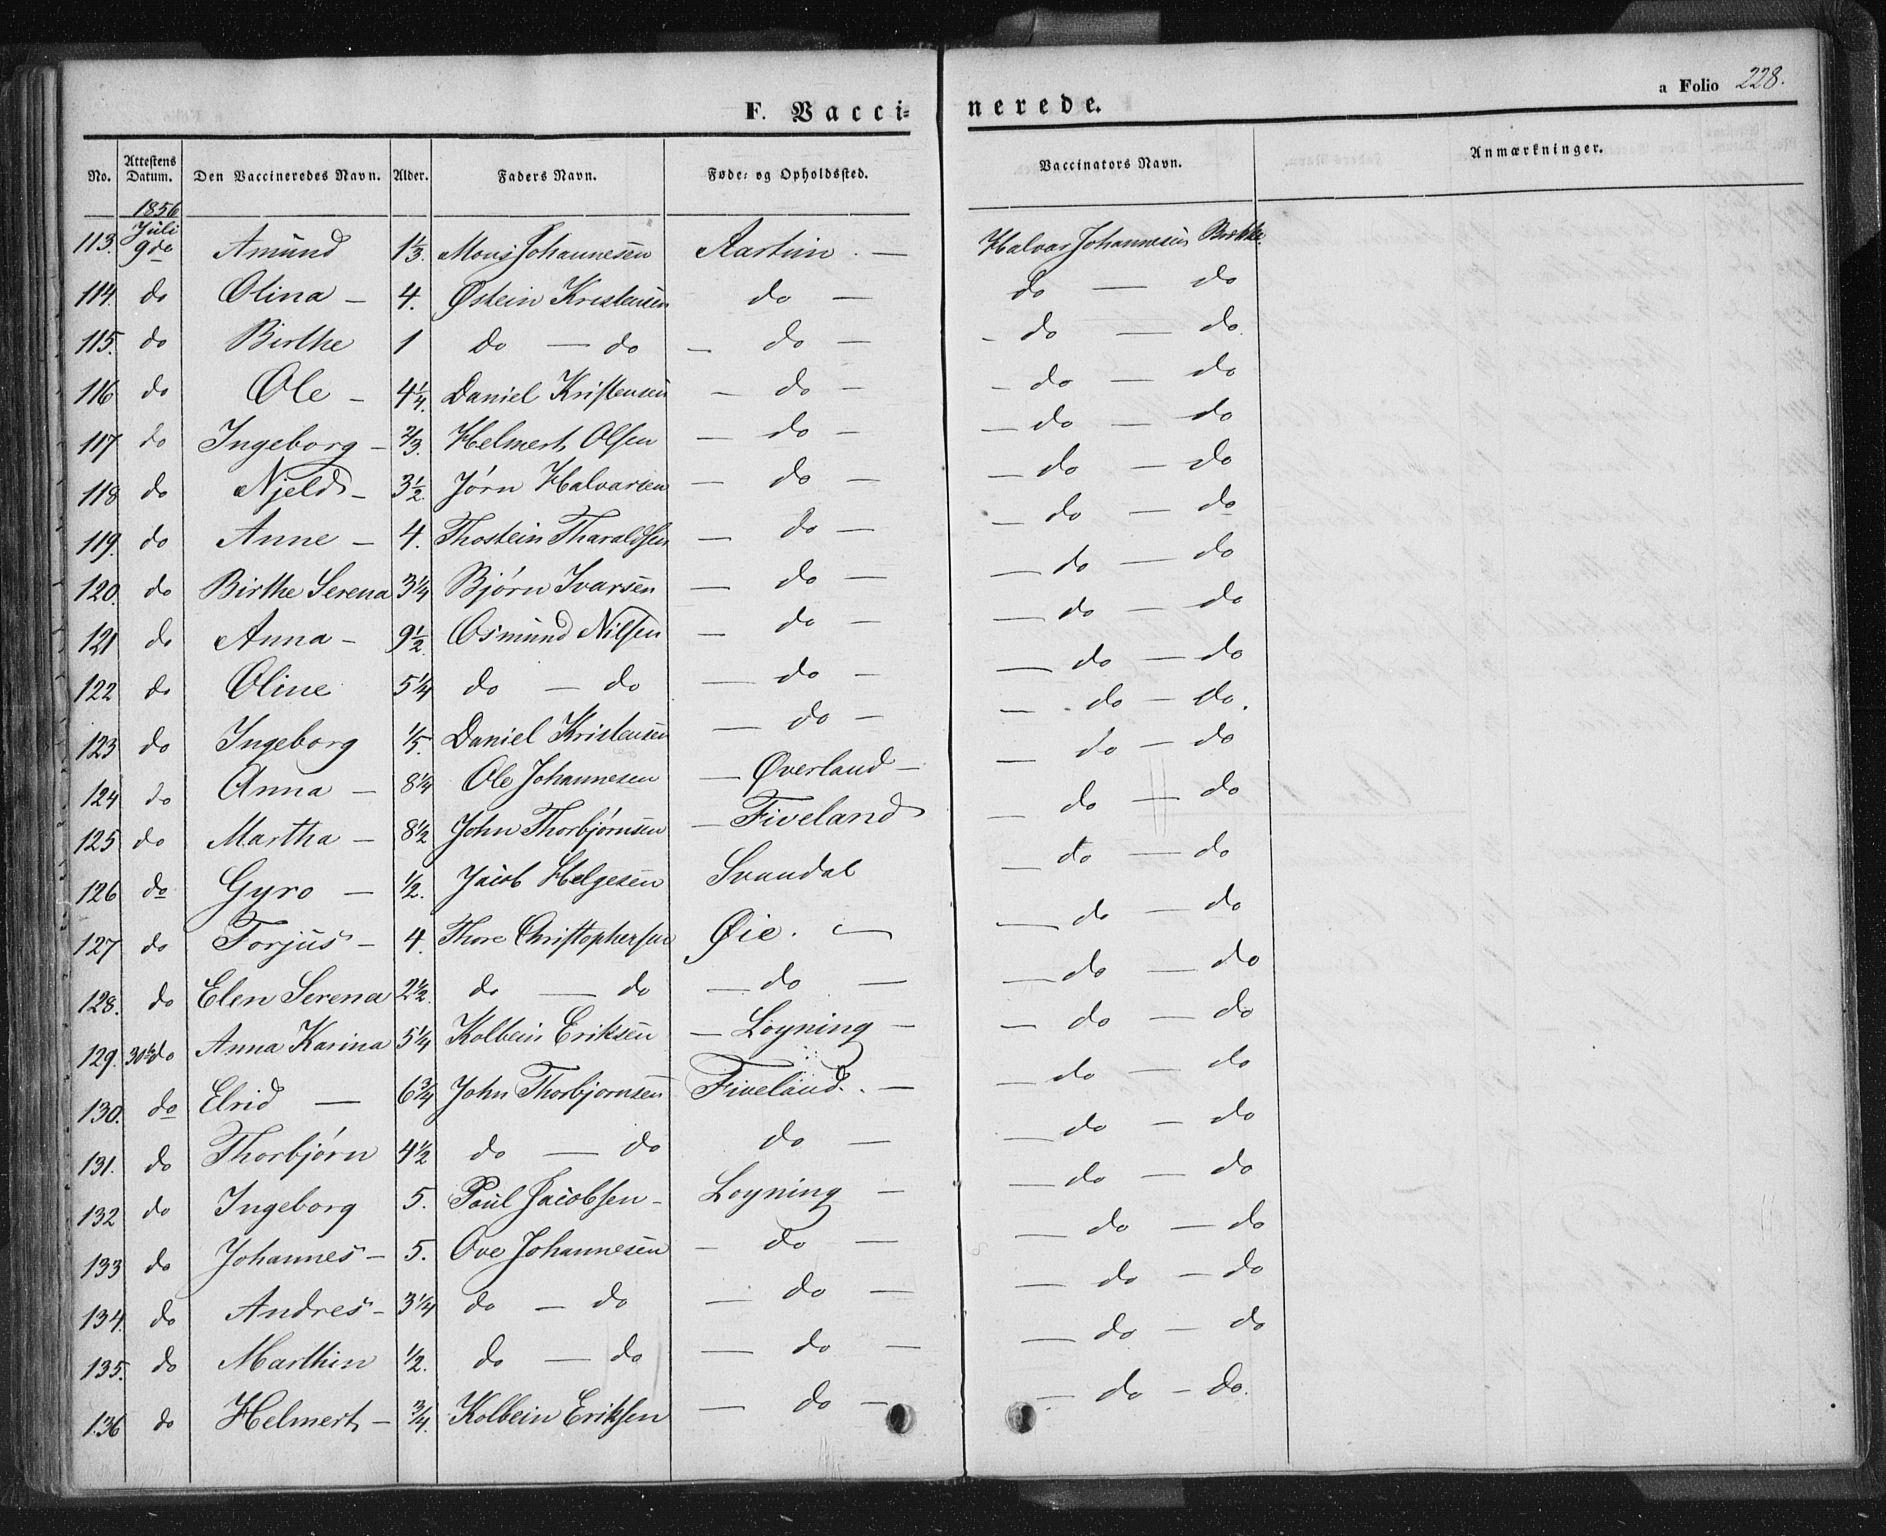 a Folio 228.
F. Vaccinerede.
No. Attestens Datum. Den Vaccineredes Navn. Alder. Faders Navn. Føde- og Opholdssted. Vaccinators Navn. Anmærkninger.
1856
Juli
113. 9de Amund 1 1/3. Mons Johannesen Aartun. — Halvar Johannesen Birkhe
114. do Olina — 4. Østein Kristensen do — do — do
115. do Birthe 1 do — do — do — - do — do
116 do Ole — 4 1/4. Daniel Kristensen — do — - do — do
117. do Ingeborg — 2/3. Helmert Olsen — do — — do — do
118 do Njeld — 3 1/2. Jørn Halvarsen — do — — do — do
119. do Anne — 4. Thostein Tharaldsen — do — — do — do
120. do Birthe Serena 3 1/4 Bjørn Ivarsen — do — — do — do
121 do Anna — 9 1/2. Osmund Nilsen — do — — do — do
122 do Oline 5 1/4 do — do — do — — do — do
123 do Ingeborg 1/5. Daniel Kristensen — do — — do — do.
124 do Anna — 8 1/4 Ole Johannesen — Øverland — — do — do
125 do Martha — 8 1/2 John Thorbjørnsen — Fiveland — do — do
126 do Gyro — 1/2. Jacob Helgesen Svandal — do — do
127 do Torjus — 4. Thore Christophersen Øie. — — do — do
128. do Elen Serena 2 1/2. do — do — do — — do — do
129. 30te do Anna Karina 5 1/4 Kolbein Eriksen — Løyning — — do — do
130. do Elrid — 6 3/4 John Thorbjørnsen Fiveland. — — do — do
131. do Thorbjørn 4 1/2 do — do do — — do — do
132 do Ingeborg 5. Poul Jacobsen — Løyning — — do — do
133 do Johannes — 5. Ove Johannesen — do — — do — do
134. do Andres — 3 1/4 do — do — do — — do — do
135. do Marthin 1/2. do — do — do — — do — do
136 do Helmert — 3/4. Kolbein Eriksen — do — — do — do.